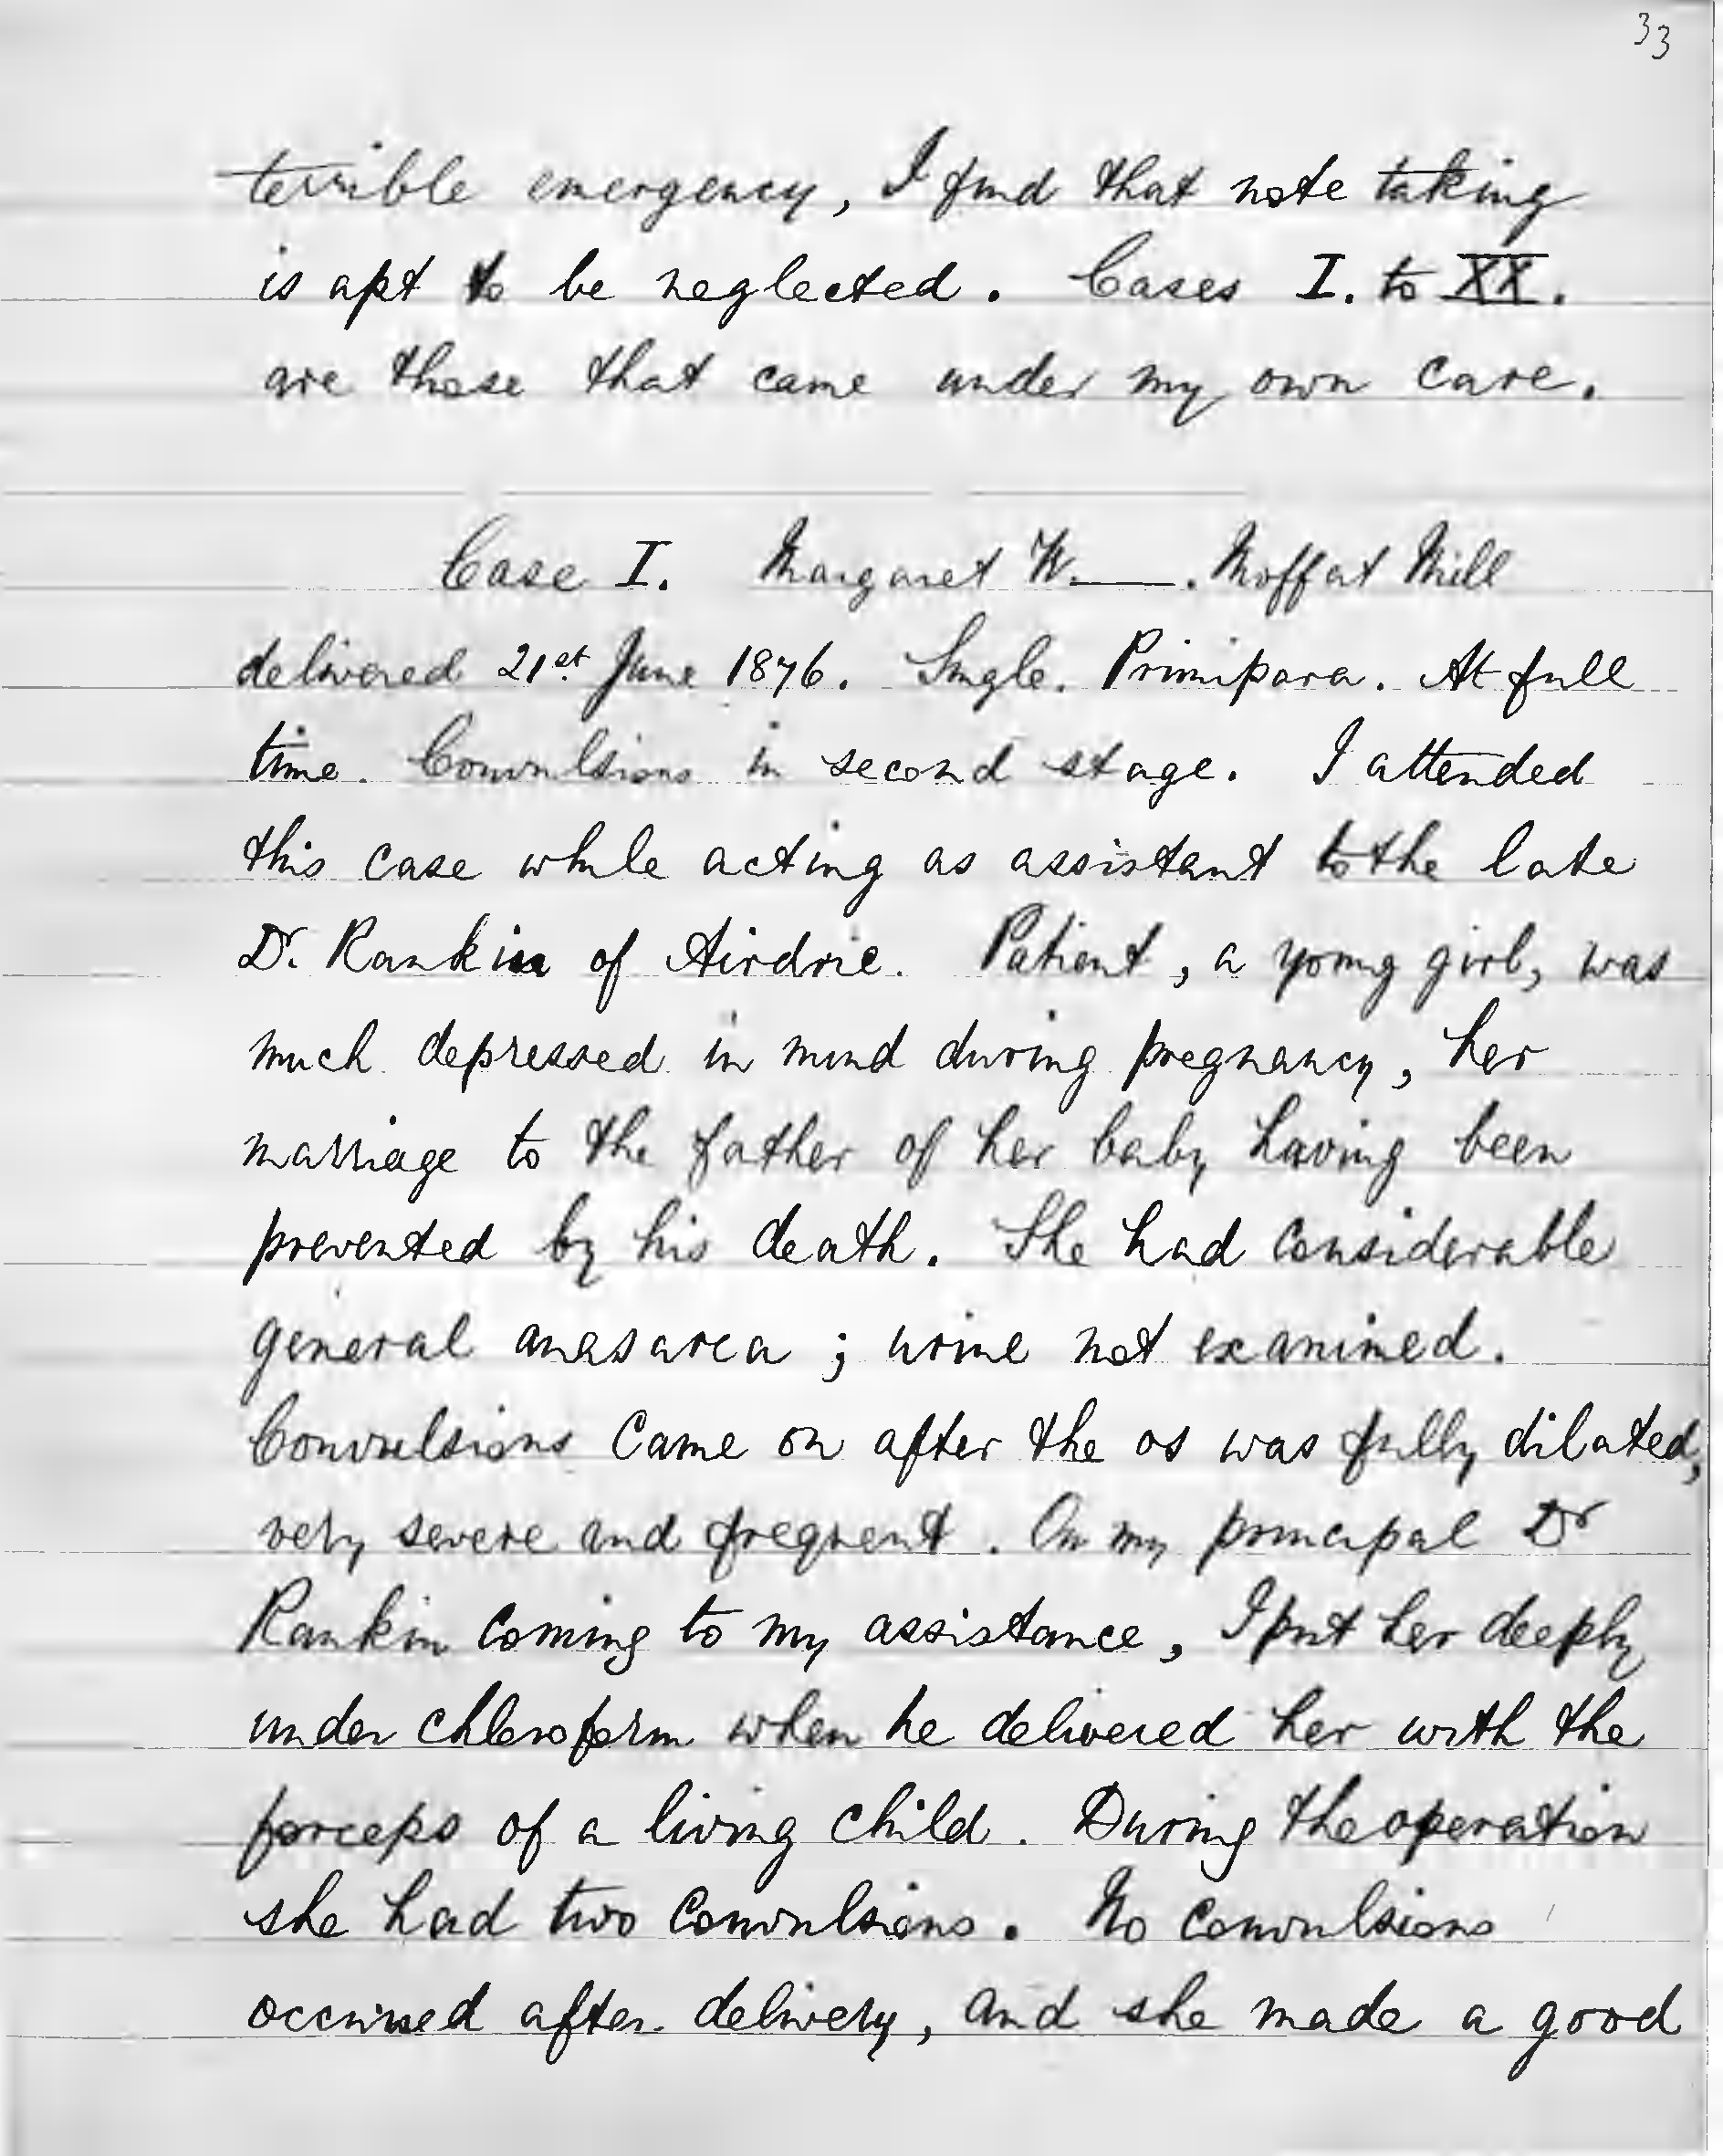 33
terrible emergency, I find that note taking
is apt to be neglected. Cases I. to XX.
are those that came under my own care.
Case I. Margaret W.——. Moffat Mill
delivered 21st. June 1876. Single. Primipara. At full
time. Convulsions in second stage. I attended
this case while acting as assistant to the late
Dr. Rankin of Airdrie. Patient, a young girl, was
much depressed in mind during pregnancy, her
marriage to the father of her baby having been
prevented by his death. She had considerable
general anasarca; urine not examined.
Convulsions came on after the os was fully dilated,
very severe and frequent. On my principal Dr
Rankin coming to my assistance, I put her deeply
under chloroform when he delivered her with the
forceps of a living child. During the operation
she had two convulsions. No convulsions
occurred after delivery, and she made a good